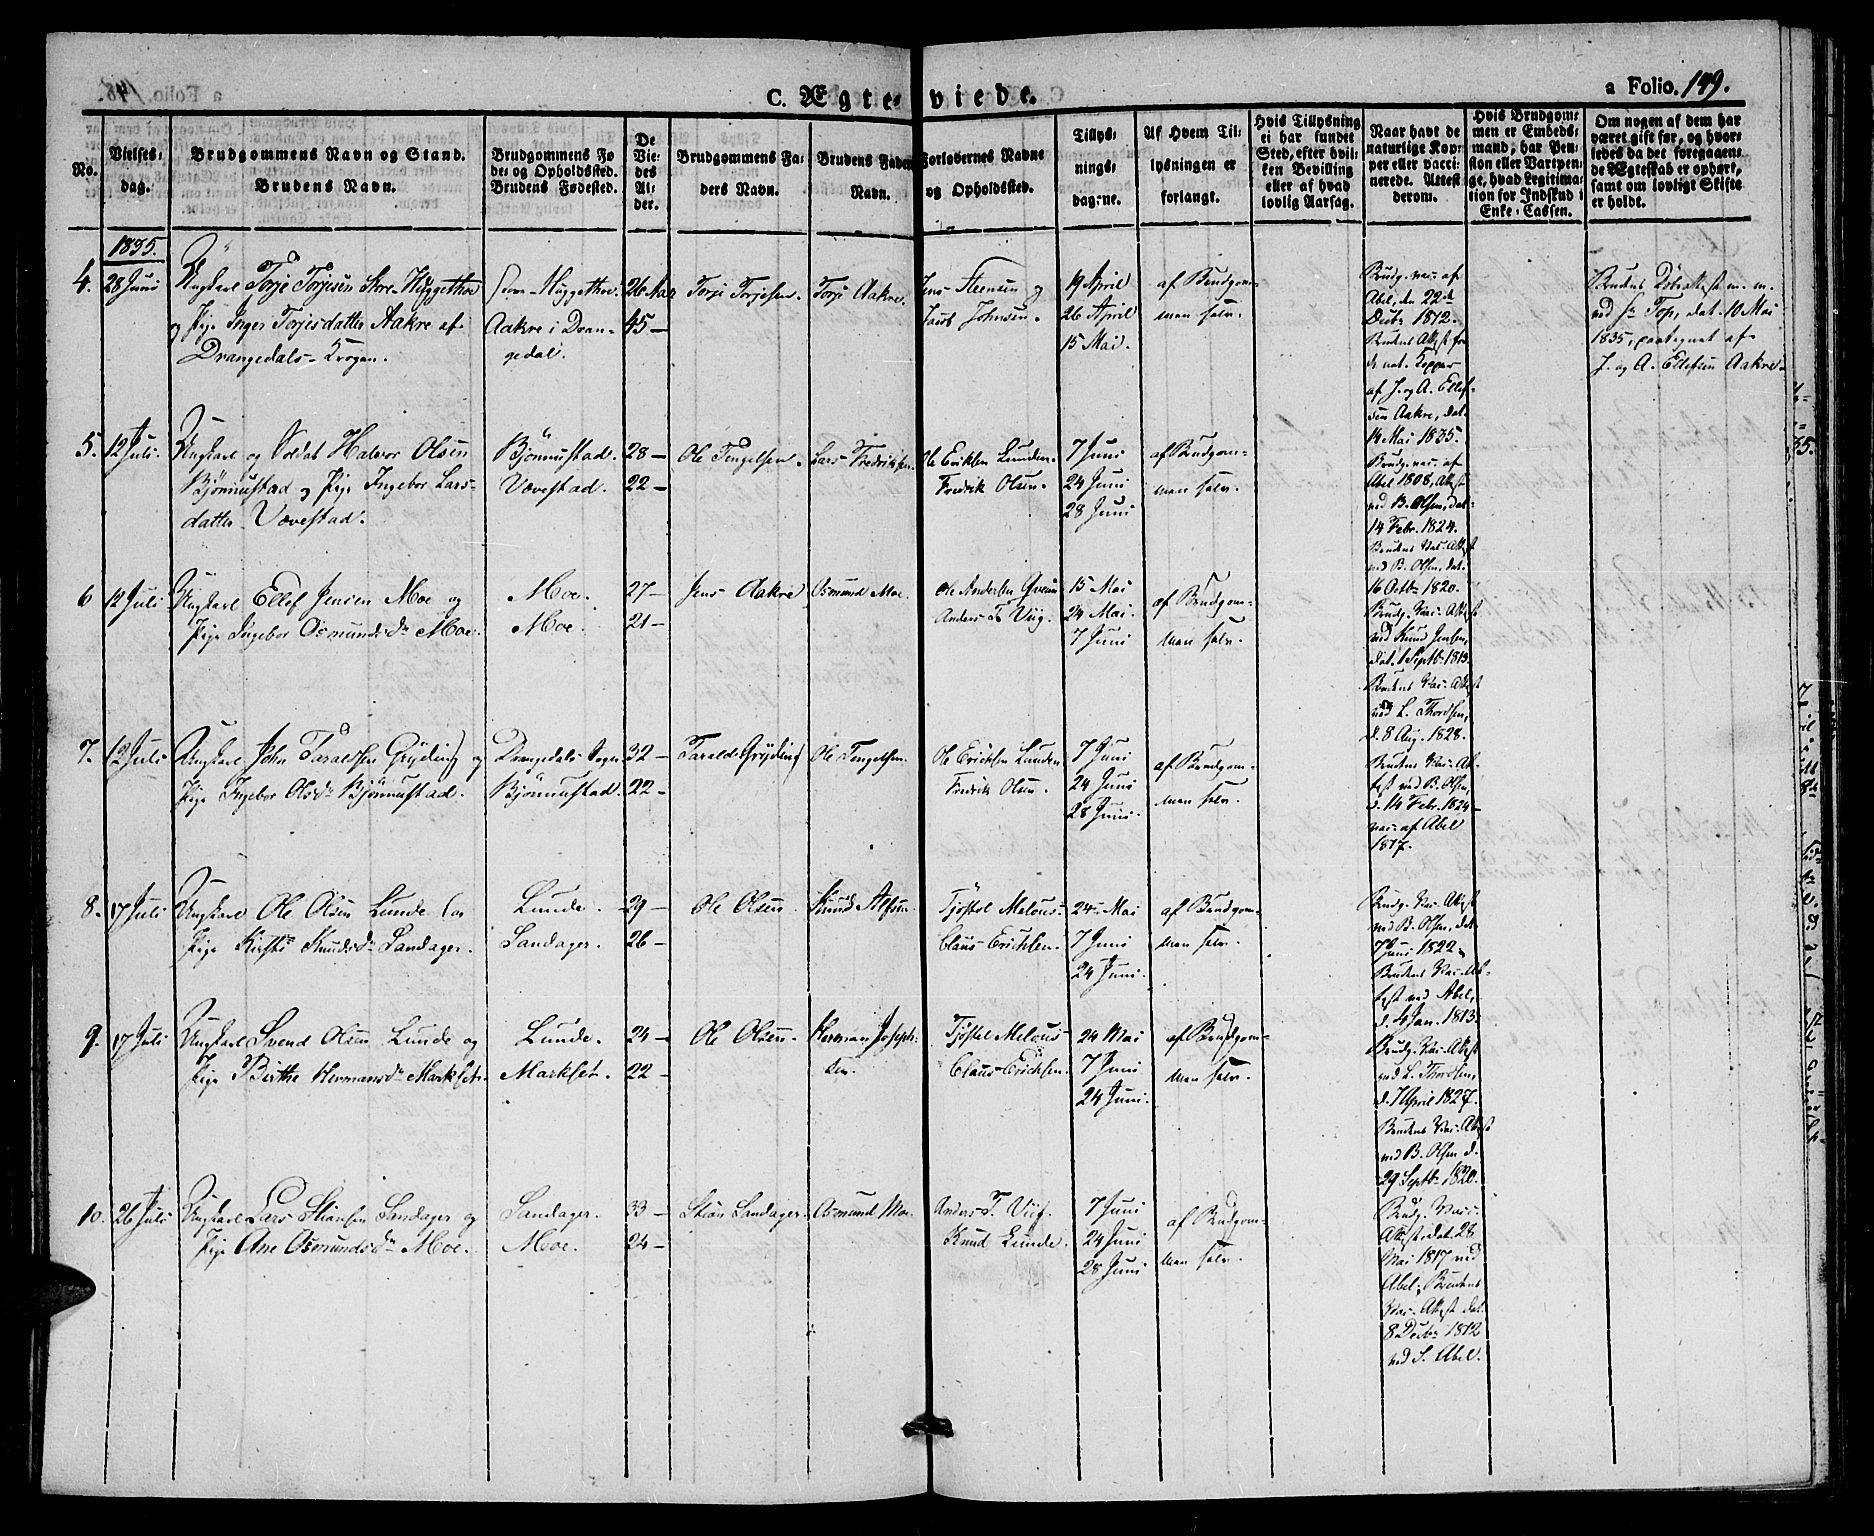 C. Ægteviede.
a Folio. 149.
No.
Vielses-
dag.
Brudgommens Navn og Stand.
Brudens Navn.
Brudgommens Fø
de- og Opholdssted.
Brudens Fødested.
De
Vie-
des
Al-
der.
Brudgommens Fa-
ders Navn.
Brudens Faders
Navn.
Forlovernes Navne
og Opholdssted.
Tillys-
nings-
dagene.
Af Hvem Til-
lysningen er
forlangt.
Hvis Tillysning
ei har fundet
Sted, efter hvil-
ken Bevilling
eller af hvad
lovlig Aarsag.
Naar havt de
naturlige Kop-
per eller vacci-
nerede. Attest
derom.
Hvis Brudgom-
men er Embeds-
mand, har Pen-
sion eller Vartpen-
ge, hvad Legitima-
tion for Indskud i
Enke-Cassen.
Om nogen af dem har
været gift før, og hvor-
ledes da det foregaaen-
de Ægteskab er ophørt,
samt om lovligt Skifte
er holdt.
1835.
4. 28 Juni
Ungkarl Torje Torjesen Hyggethve
og Pige Inger Torjesdatter Aakre af
Drangedals-Krogen.
Hyggethve.
Aakre i Dran-
gedal.
26 Aar
45 -
Torje Torjesen.
Torje Aakre.
Jens Steensen og
Jacob Johnsen.
19 April
26 April
15 Mai.
af Brudgom-
man selv.
Brudg. vac. af
Abel, den 22de
Decbr 1812.
Brudens Attest for
de nat. Kopper
af J. og A. Ellef-
sen Aakre, dat.
14 Mai 1835.
Brudens Døbeattest m. m.
ved Hr Top, dat. 10 Mai
1835, paategnet af
J. og A. Ellefsen Aakre.
5. 12 Juli.
Ungkarl og Soldat Halvor Olsen
Bjönnustad og Pige Ingebor Lars-
datter Vævestad.
Bjönnustad.
Vævestad.
28 -
22 -
Ole Tengelsen.
Lars Fredriksen.
Ole Eriksen Lunden
Fredrik Olsen.
7 Juni
24 Juni
28 Juni
af Brudgom-
man selv.
Brudg. vac. af
Abel 1808, Attest
ved B. Olsen, dat.
14 Febr. 1824.
Brudens Vac. Attest
ved B. Olsen, dat.
16 Octbr 1820.
6 12 Juli
Ungkarl Ellef Jensen Moe og
Pige Ingebor Osmundsdr Moe.
Moe.
Moe.
27 -
21 -
Jens Aakre
Osmund Moe.
Ole Andersen
Anders T. Viig.
15 Mai
24 Mai.
7 Juni
af Brudgom-
man selv.
Brudg. Vac. Attest
ved Knud Jensen,
dat. 1 Septbr 1813.
Brudens Vac. Attest
ved L. Thordsen,
d. 8 Aug. 1828.
7. 12 Juli
Ungkarl John Taraldsen Gryding og
Pige Ingebor Olsdr Bjönnustad.
Drangedals Sogn
Bjönnustad.
32 -
22 -
Tarald Gryding
Ole Tengelsen.
Ole Erichsen Lunden
Fredrik Olsen.
7 Juni
24 Juni
28 Juni.
af Brudgom-
man selv.
Brudens Vac. At-
test ved B. Olsen,
d. 14 Febr. 1824 -
vac. af Abel
1817.
8. 17 Juli
Ungkarl Ole Olsen Lunde og
Pige Kirsti Knudsdr Sandager.
Lunde.
Sandager.
29 -
26 -
Ole Olsen
Knud Alfsen.
Tjöstel Melous-
Claus Erichsen.
24 Mai
7 Juni
24 Juni.
af Brudgom-
man selv.
Brudg. Vac. Attest
ved B. Olsen, dat.
7 Juni 1822.
Brudens Vac. At-
test ved Abel,
d. 4 Jan. 1813.
9. 17 Juli
Ungkarl Svend Olsen Lunde og
Pige Birthe Hermansdr Markset.
Lunde.
Markset.
24 -
22 -
Ole Olsen.
Herman Joseph-
sen.
Tjöstel Melous-
Claus Erichsen.
24 Mai
7 Juni
24 Juni.
af Brudgom-
man selv.
Brudg. Vac. Attest
ved L. Thordsen,
d. 7 April 1827.
Brudens Vac. Attest
ved B. Olsen d.
29 Septbr 1820.
10. 26 Juli
Ungkarl Lars Stiansen Sandager og
Pige Ane Osmundsdr Moe.
Sandager.
Moe.
33 -
24 -
Stian Sandager.
Osmund Moe.
Anders T. Viig.
Knud Lunde.
7 Juni
24 Juni
28 Juni
af Brudgom-
man selv.
Brudg. Vac.
Attest, dat. 28
Mai 1817 ved
Abel; Brudens
Vac. Attest dat.
8 Decbr 1812
ved S. Abel.